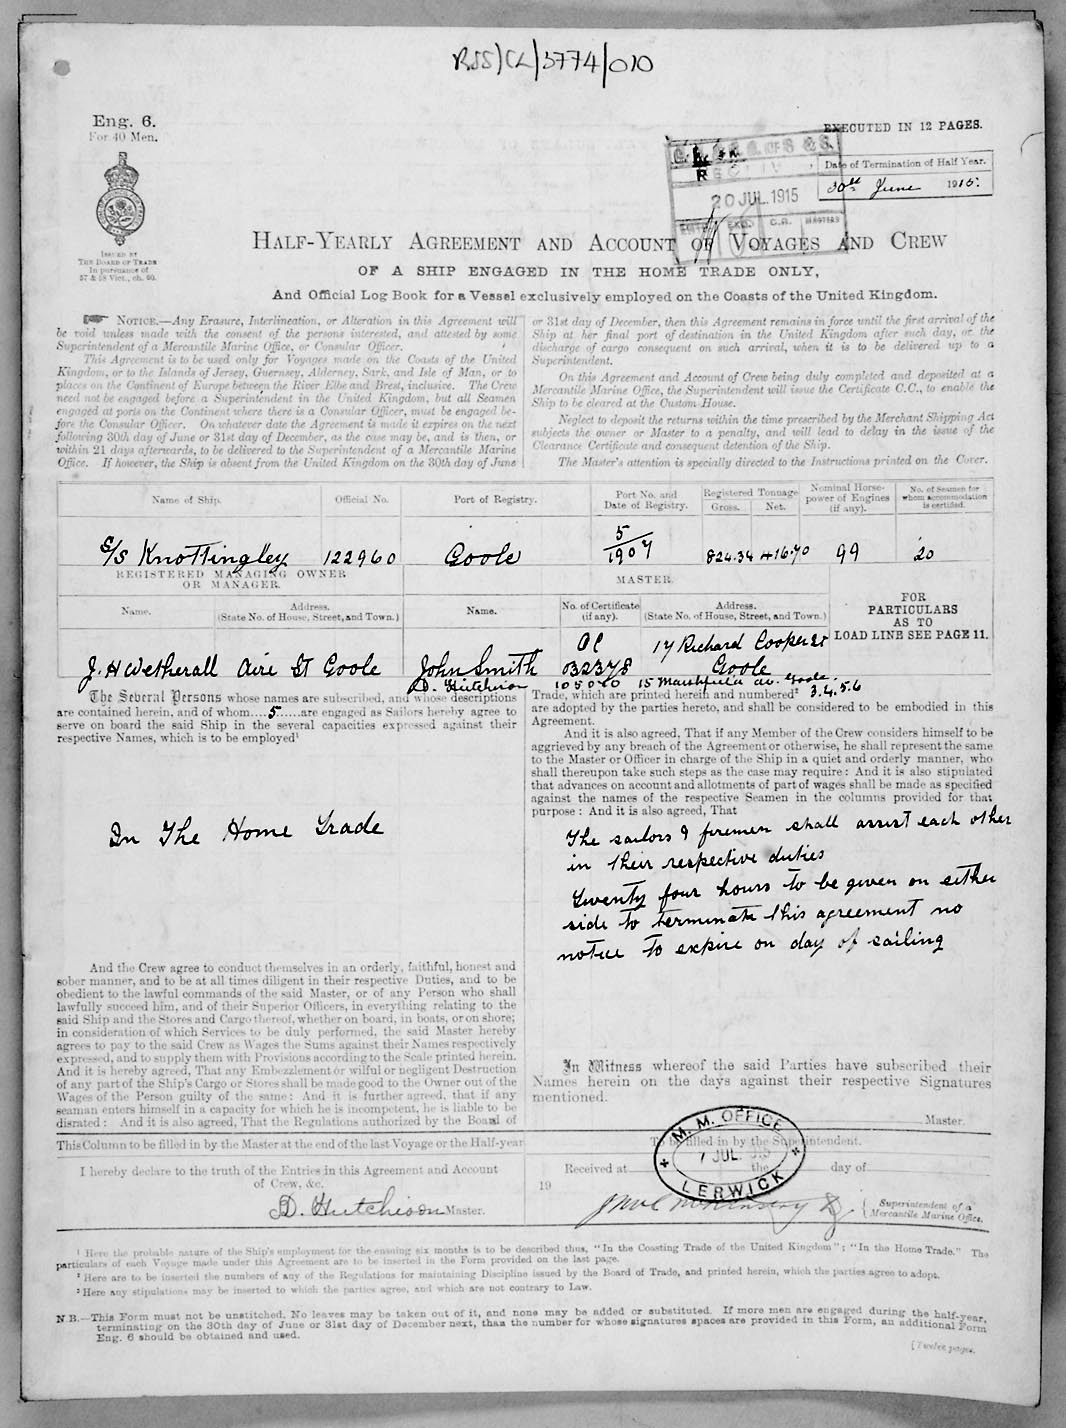 RSS/CL/3774/010
Eng. 6.
For 40 Men.
EXECUTED IN 12 PAGES.
Date of Termination of Half Year.
30th June 1915.
20 JUL. 1915
ISSUED BY
THE BOARD OF TRADE
In pursuance of
57 & 58 Vict., ch. 60.
HALF-YEARLY AGREEMENT AND ACCOUNT OF VOYAGES AND CREW
OF A SHIP ENGAGED IN THE HOME TRADE ONLY,
And Official Log Book for a Vessel exclusively employed on the Coasts of the United Kingdom.
NOTICE.—Any Erasure, Interlineation, or Alteration in this Agreement will
be void unless made with the consent of the persons interested, and attested by some
Superintendent of a Mercantile Marine Office, or Consular Officer.
This Agreement is to be used only for Voyages made on the Coasts of the United
Kingdom, or to the Islands of Jersey, Guernsey, Alderney, Sark, and Isle of Man, or to
places on the Continent of Europe between the River Elbe and Brest, inclusive. The Crew
need not be engaged before a Superintendent in the United Kingdom, but all Seamen
engaged at ports on the Continent where there is a Consular Officer, must be engaged be-
fore the Consular Officer. On whatever date the Agreement is made it expires on the next
following 30th day of June or 31st day of December, as the case may be, and is then, or
within 21 days afterwards, to be delivered to the Superintendent of a Mercantile Marine
Office. If however, the Ship is absent from the United Kingdom on the 30th day of June
or 31st day of December, then this Agreement remains in force until the first arrival of the
Ship at her final port of destination in the United Kingdom after such day, or the
discharge of cargo consequent on such arrival, when it is to be delivered up to a
Superintendent.
On this Agreement and Account of Crew being duly completed and deposited at a
Mercantile Marine Office, the Superintendent will issue the Certificate C.C., to enable the
Ship to be cleared at the Custom House.
Neglect to deposit the returns within the time prescribed by the Merchant Shipping Act
subjects the owner or Master to a penalty, and will lead to delay in the issue of the
Clearance Certificate and consequent detention of the Ship.
The Master's attention is specially directed to the Instructions printed on the Cover.
Name of Ship. Official No. Port of Registry. Port No. and Date of Registry. Registered Tonnage Gross. Net. Nominal Horse-power of Engines (if any). No. of Seamen for whom accommodation is certified.
S/S Knottingley 122960 Goole 5/1907 824.34 416.70 99 20
REGISTERED MANAGING OWNER OR MANAGER.
MASTER.
Name. Address. (State No. of House, Street, and Town.) Name. No. of Certificate (if any). Address. (State No. of House, Street, and Town.)
FOR
PARTICULARS
AS TO
LOAD LINE SEE PAGE 11.
J. H Wetherall Aire St Goole John Smith OC 032378 17 Richard Cooper St Goole
D. Hutchison 105020 15 Marshfield Av. Goole.
The Several Persons whose names are subscribed, and whose descriptions
are contained herein, and of whom....5......are engaged as Sailors hereby agree to
serve on board the said Ship in the several capacities expressed against their
respective Names, which is to be employed¹
In The Home Trade
And the Crew agree to conduct themselves in an orderly, faithful, honest and
sober manner, and to be at all times diligent in their respective Duties, and to be
obedient to the lawful commands of the said Master, or of any Person who shall
lawfully succeed him, and of their Superior Officers, in everything relating to the
said Ship and the Stores and Cargo thereof, whether on board, in boats, or on shore;
in consideration of which Services to be duly performed, the said Master hereby
agrees to pay to the said Crew as Wages the Sums against their Names respectively
expressed, and to supply them with Provisions according to the Scale printed herein.
And it is hereby agreed, That any Embezzlement or wilful or negligent Destruction
of any part of the Ship's Cargo or Stores shall be made good to the Owner out of the
Wages of the Person guilty of the same: And it is further agreed, that if any
seaman enters himself in a capacity for which he is incompetent, he is liable to be
disrated: And it is also agreed, That the Regulations authorized by the Board of
Trade, which are printed herein and numbered² 3.4.5.6
are adopted by the parties hereto, and shall be considered to be embodied in this
Agreement.
And it is also agreed, That if any Member of the Crew considers himself to be
aggrieved by any breach of the Agreement or otherwise, he shall represent the same
to the Master or Officer in charge of the Ship in a quiet and orderly manner, who
shall thereupon take such steps as the case may require: And it is also stipulated
that advances on account and allotments of part of wages shall be made as specified
against the names of the respective Seamen in the columns provided for that
purpose: And it is also agreed, That
The sailors & firemen shall assist each other
in their respective duties
Twenty four hours to be given on either
side to terminate this agreement no
notice to expire on day of sailing
In Witness whereof the said Parties have subscribed their
Names herein on the days against their respective Signatures
mentioned.
Master.
This Column to be filled in by the Master at the end of the last Voyage or the Half-year
I hereby declare to the truth of the Entries in this Agreement and Account
of Crew, &c.
D. Hutchison Master.
To be filled in by the Superintendent.
Received at the day of
19
M. M. OFFICE
7 JUL.
LERWICK
Superintendent of a
Mercantile Marine Office.
¹ Here the probable nature of the Ship's employment for the ensuing six months is to be described thus, "In the Coasting Trade of the United Kingdom"; "In the Home Trade." The
particulars of each Voyage made under this Agreement are to be inserted in the Form provided on the last page.
² Here are to be inserted the numbers of any of the Regulations for maintaining Discipline issued by the Board of Trade, and printed herein, which the parties agree to adopt.
³ Here any stipulations may be inserted to which the parties agree, and which are not contrary to Law.
N.B.—This Form must not be unstitched. No leaves may be taken out of it, and none may be added or substituted. If more men are engaged during the half-year,
terminating on the 30th day of June or 31st day of December next, than the number for whose signatures spaces are provided in this Form, an additional Form
Eng. 6 should be obtained and used.
[Twelve pages.